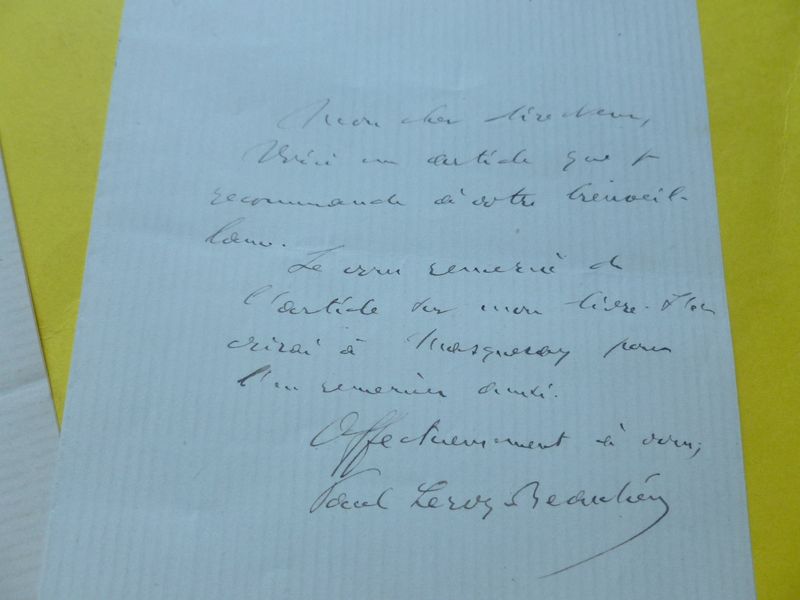 Mon cher directeur,
Voici un article que je
recommande à votre bienveil-
lance.
Je vous remercie de
l'article sur mon livre. J'é-
crirai à Masqueray pour
l'en remercier aussi.
Affectueusement à vous,
Paul Leroy-Beaulieu